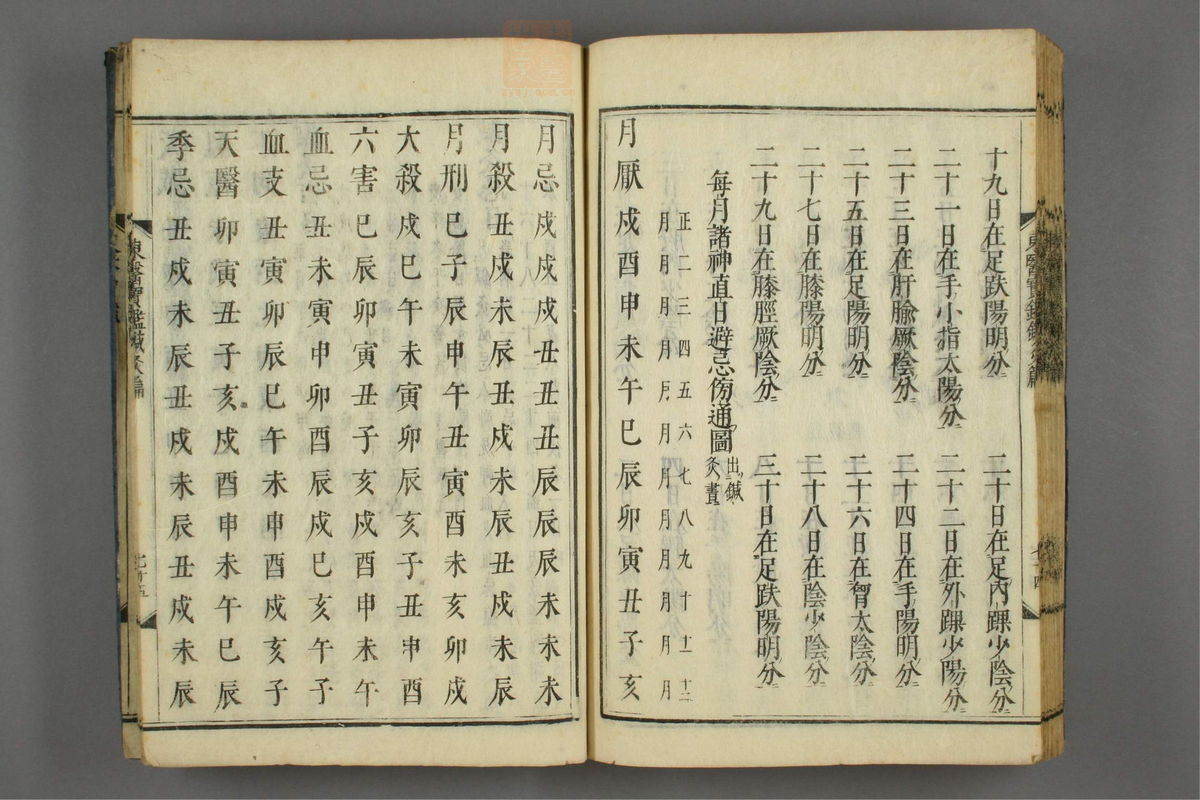 十九日在足趺陽明分 二十日在足內踝少陰分
二十一日在手小指太陽分 二十二日在外踝少陽分
二十三日在肝腧厥陰分 二十四日在手陽明分
二十五日在足陽明分 二十六日在胷太陰分
二十七日在膝陽明分 二十八日在陰少陰分
二十九日在膝脛厥陰分 三十日在足趺陽明分
每月諸神直日避忌傍通圖 出鍼灸書
正月 二月 三月 四月 五月 六月 七月 八月 九月 十月 十一月 十二月
月厭戌酉申未午巳辰卯寅丑子亥
月忌戌戌戌丑丑丑辰辰辰未未未
月殺丑戌未辰丑戌未辰丑戌未辰
月刑巳子辰申午丑寅酉未亥卯戌
大殺戌巳午未寅卯辰亥子丑申酉
六害巳辰卯寅丑子亥戌酉申未午
血忌丑未寅申卯酉辰戌巳亥午子
血支丑寅卯辰巳午未申酉戌亥子
天醫卯寅丑子亥戌酉申未午巳辰
季忌丑戌未辰丑戌未辰丑戌未辰
東醫寶鑑鍼灸篇